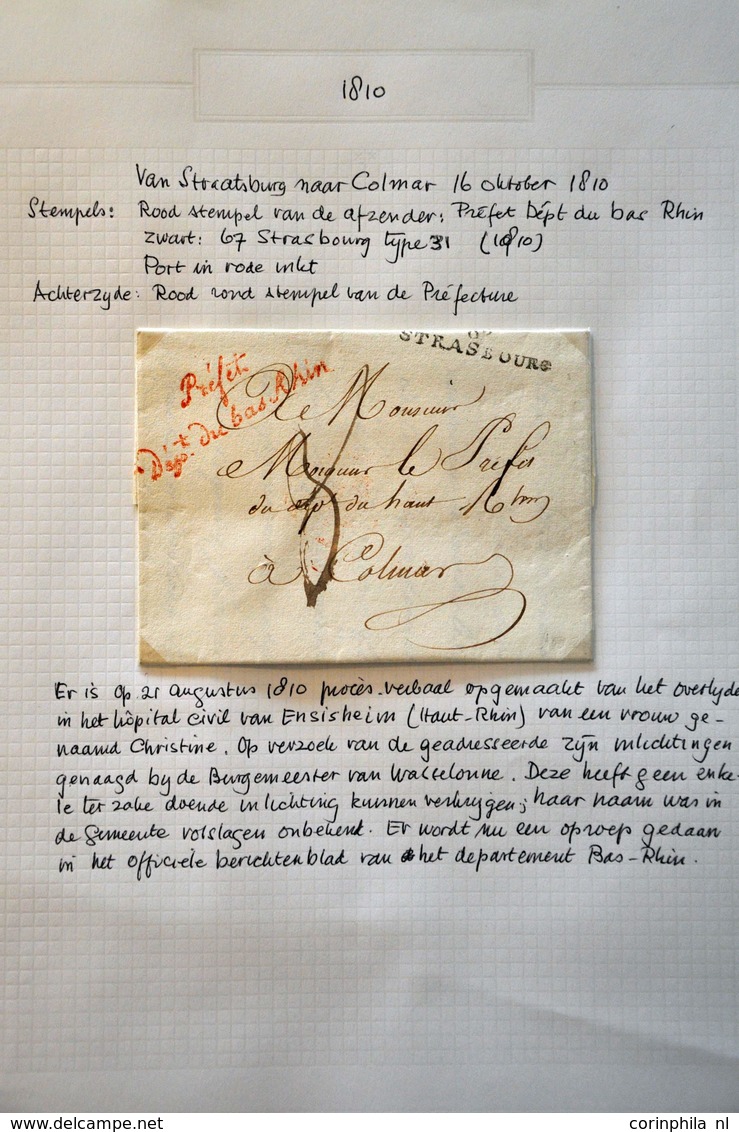 1810
Van Straatsburg naar Colmar 16 oktober 1810
Stempels: Rood stempel van de afzender: Préfet Dépt du bas Rhin
zwart: 67 Strasbourg type 31 (1810)
Port in rode inkt
Achterzyde: Rood rond stempel van de Préfecture
67
STRASBOURG
Préfet
Dépt. du bas-Rhin
A Monsieur
Monsieur le Préfet
du dépt du haut Rhin
à Colmar
Er is op 21 augustus 1810 procès-verbaal opgemaakt van het overlyde
in het hôpital civil van Ensisheim (Haut-Rhin) van een vrouw ge-
naamd Christine. Op verzoek van de geadresseerde zyn inlichtingen
gevraagd by de Burgemeester van Wasselonne. Deze heeft geen enke-
le ter zake doende inlichting kunnen verkrygen; haar naam was in
de gemeente volslagen onbekend. Er wordt nu een oproep gedaan
in het officiële berichtenblad van het departement Bas-Rhin.
www.delcampe.net
corinphila nl